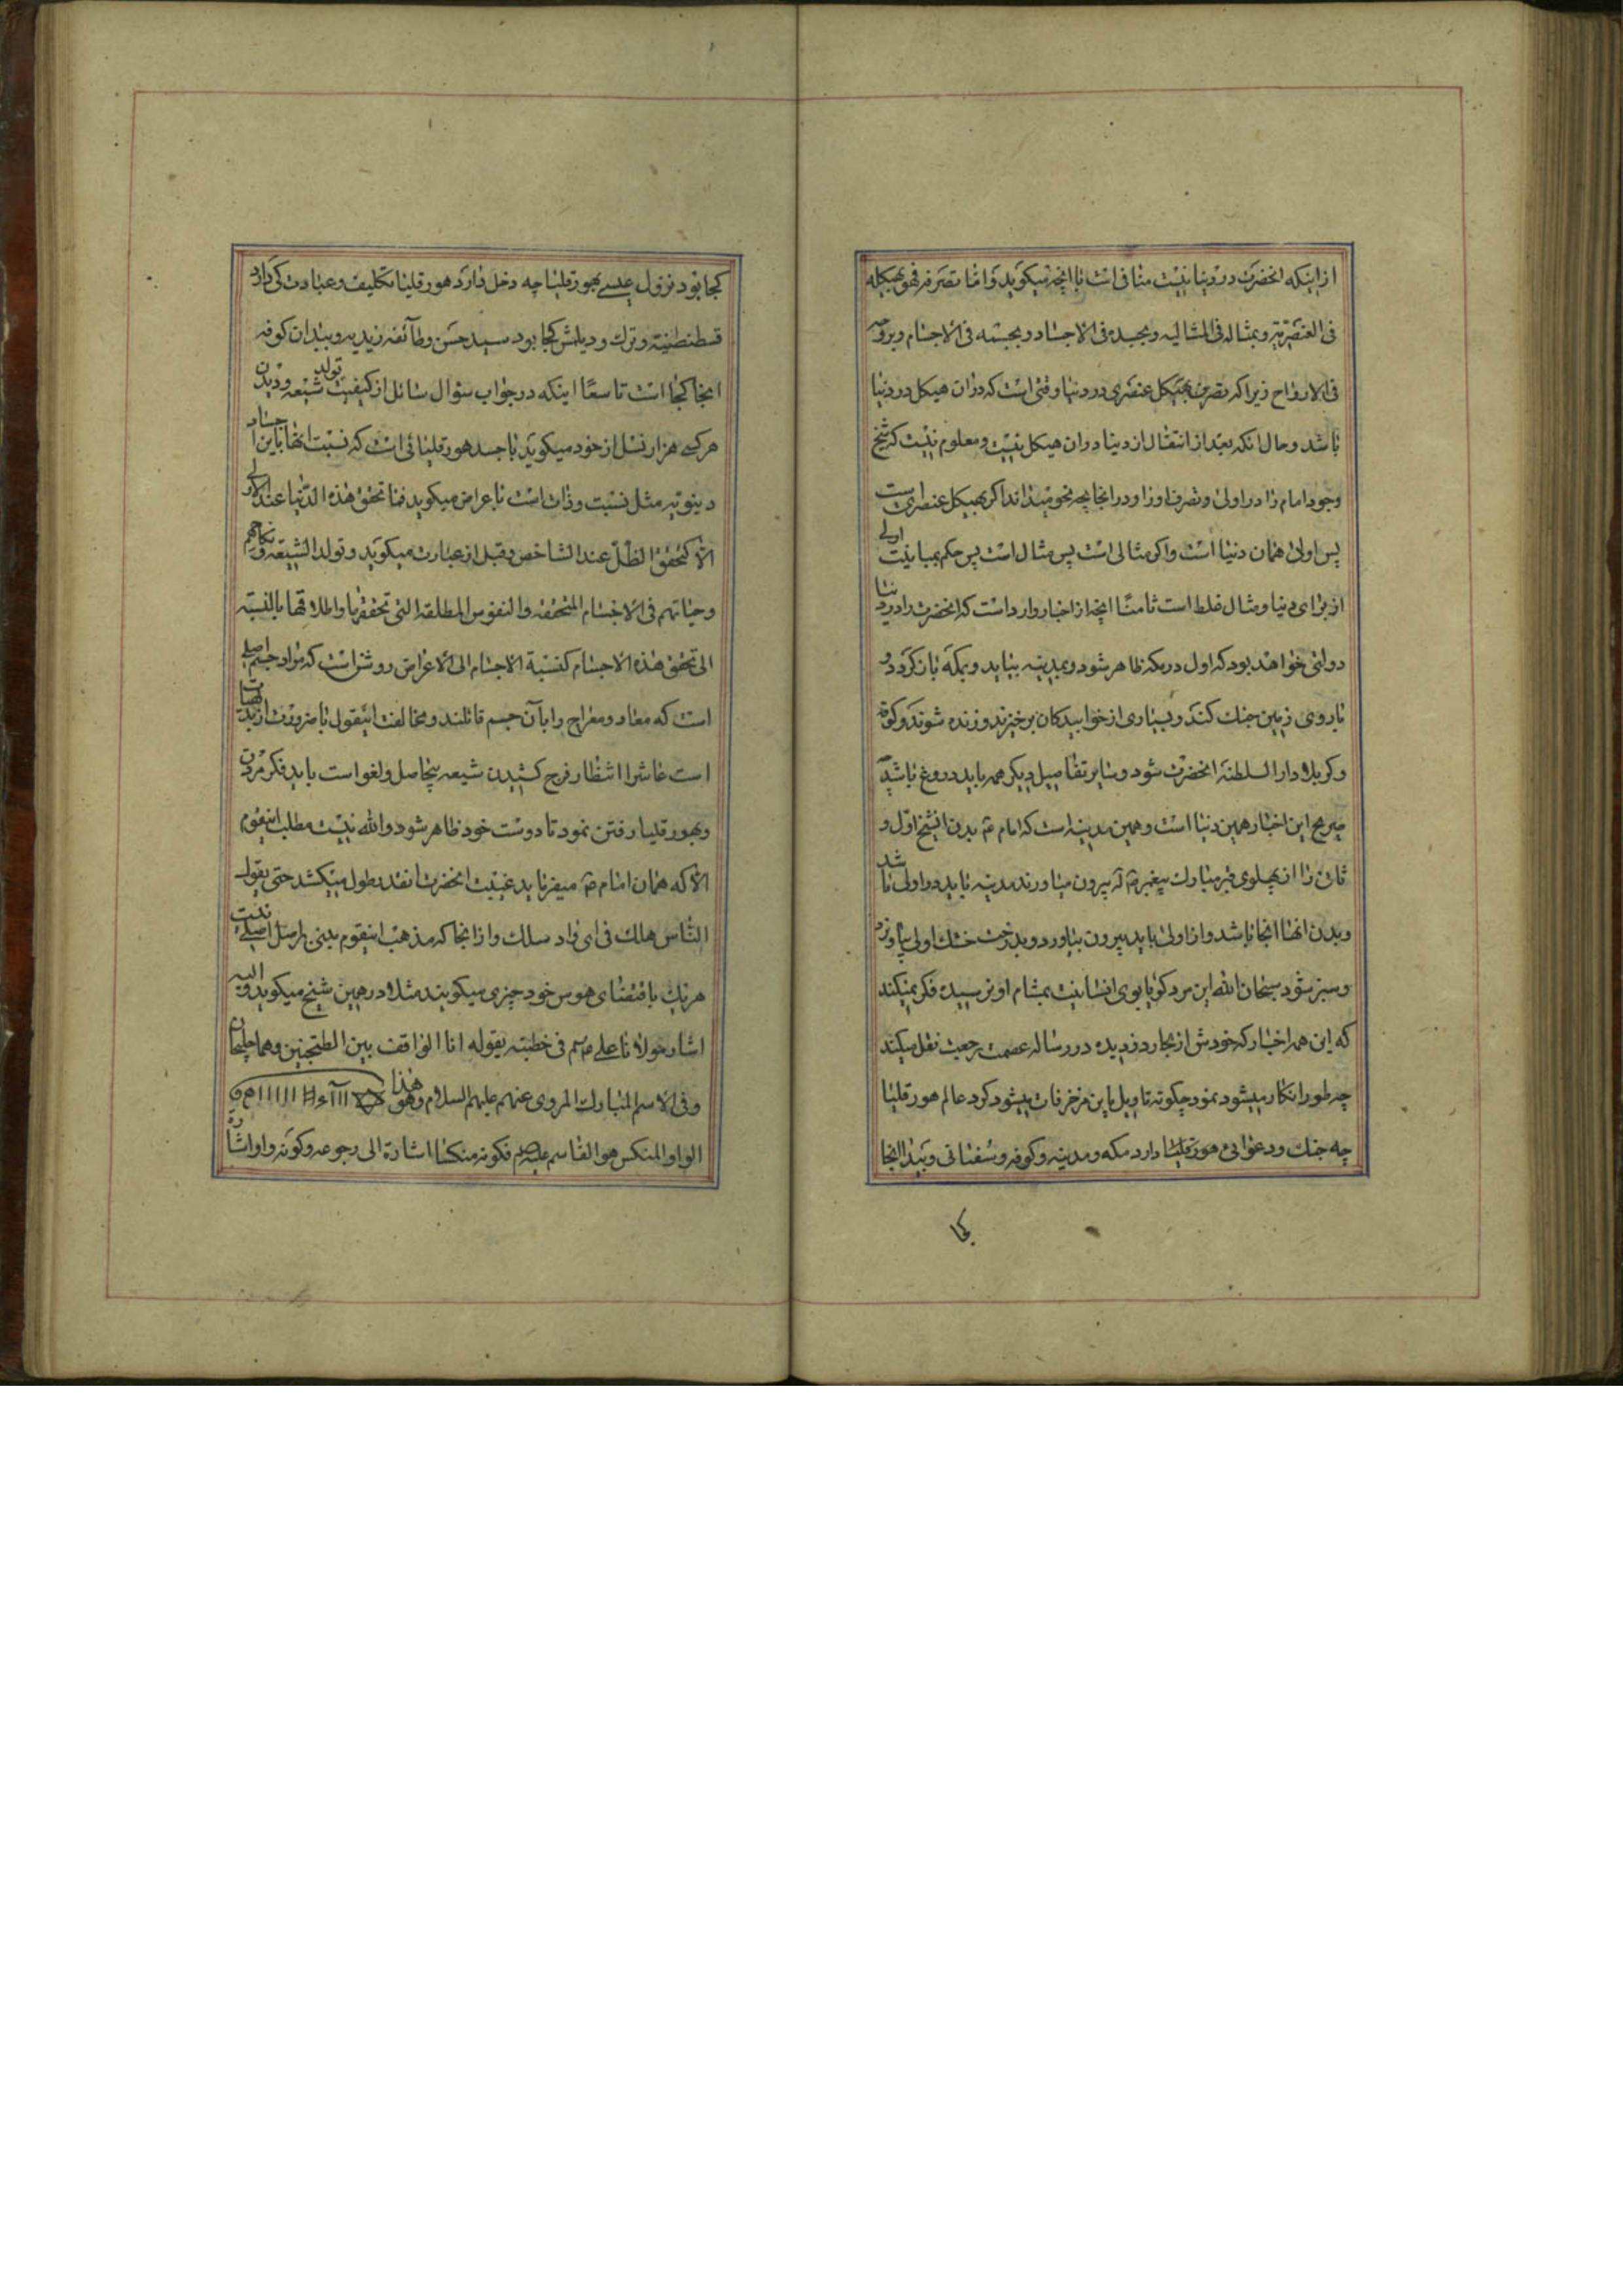 از اینکه انحضرت در دنیا نیست منافی است با انچه میکوید و اما تصرفه فهو بهیکله
فی العنصریة و بمثاله فی المثالیه و بجسده فی الاجساد و بجسمه فی الاجسام و بروحه
فی الارواح زیرا که تصرف بهیکل عنصری در دنیا وقتی است که دران هیکل در دنیا
باشد و حال انکه بعد از انتقال از دنیا دران هیکل نیست و معلوم نیست که شیخ
وجود امام را در اولی و تصرف او را در انجا بچه نحو میداند اکر بهیکل عنصری است
پس اولی همان دنیا است و اکر مثالی است پس مثال است پس حکم بمباینت اولی
از برای دنیا و مثال غلط است ثامنًا انچه از اخبار وارد است که انحضرت را در دنیا
دولتی خواهد بود که اول در مکه ظاهر شود و بمدینه بیاید و بمکه باز کردد و
با روی زمین جنك کند و بسیاری از خوابیدکان برخیزند و زنده شوند و کوفه
و کربلا دار السلطنه انحضرت شود و سایر تفاصیل دیکر همه باید دروغ باشد
صریح این اخبار همین دنیا است و همین مدینه است که امام ع بدن شیخ اول و
ثانی را از پهلوی قبر مبارك پیغمبر ص بیرون میاورند مدینه باید در اولی باشد
و بدن انها انجا باشد و از اولی باید بیرون بیاورد و بدرخت خشك اولی بیاویزد
و سبز شود سبحان الله این مرد کویا بوی انسانیت بمشام او نرسیده فکر نمیکند
که این همه اخبار که خودش از بحار دزدیده در رساله عصمت رجعت نقل میکند
چه طور انکار میشود نمود چکونه تاویل باین مزخرفات میشود کرد عالم هورقلیا
چه جنك و دعوائی هورقلیا دارد مکه و مدینه و کوفه و سفیانی و بیدا انجا
کجا
کجا بود نزول عیسی بهورقلیا چه دخل دارد هورقلیا تکلیف و عبادت کی دارد
قسطنطنیه و ترك و دیلمش کجا بود سید حسن و طائفه زیدیه و میدان کوفه
انجا کجا است تاسعًا اینکه در جواب سؤال سائل از کیفیت تولد شیعه و دیدن
هر کسی هزار نسل از خود میکوید با جسد هورقلیائی است که نسبت انها باین اجساد
دنیویه مثل نسبت ذات است باعراض میکوید فما تحقق هذه الدنیا عند الاولی
الا کتحقق الظل عند الشاخص و قبل از عبارت میکوید و تولد الشیعه و نکاحهم
و حیاتهم فی الاجسام المتحققه و النفوس المطلقه التی تحققها و اطلاقها بالنسبته
الی تحقق هذه الاجسام کنسبة الاجسام الی الاعراض روشن است که مراد جسم اصلی
است که معاد و معراج را بآن جسم قائلند و مخالفت اینقول با ضرورت از بدیهیات
است عاشرا انتظار فرج کشیدن شیعه بیحاصل و لغو است باید فکر مردن
و بهورقلیا رفتن نمود تا دوست خود ظاهر شود والله نیست مطلب اینقوم
الا که همان امام ع میفرماید غیبت انحضرت انقدر طول میکشد حتی یقول
الناس هلك فی ای واد سلك و از انجا که مذهب اینقوم مبنی بر اصل اصیلی نیست
هر یك باقتضای هوس خود چیزی میکویند مثلا در همین شیخ میکوید والیه
اشار مولانا علی ع فی خطبته بقوله انا الواقف بین الطتنجین و هما خلیجان
و فی الاسم المبارك المروی عنهم علیهم السلام و هو هذا
الواو المنکس هو القاسم علیه السلم فکونه منکسا اشارة الی رجوعه و کونه واوا اشارة